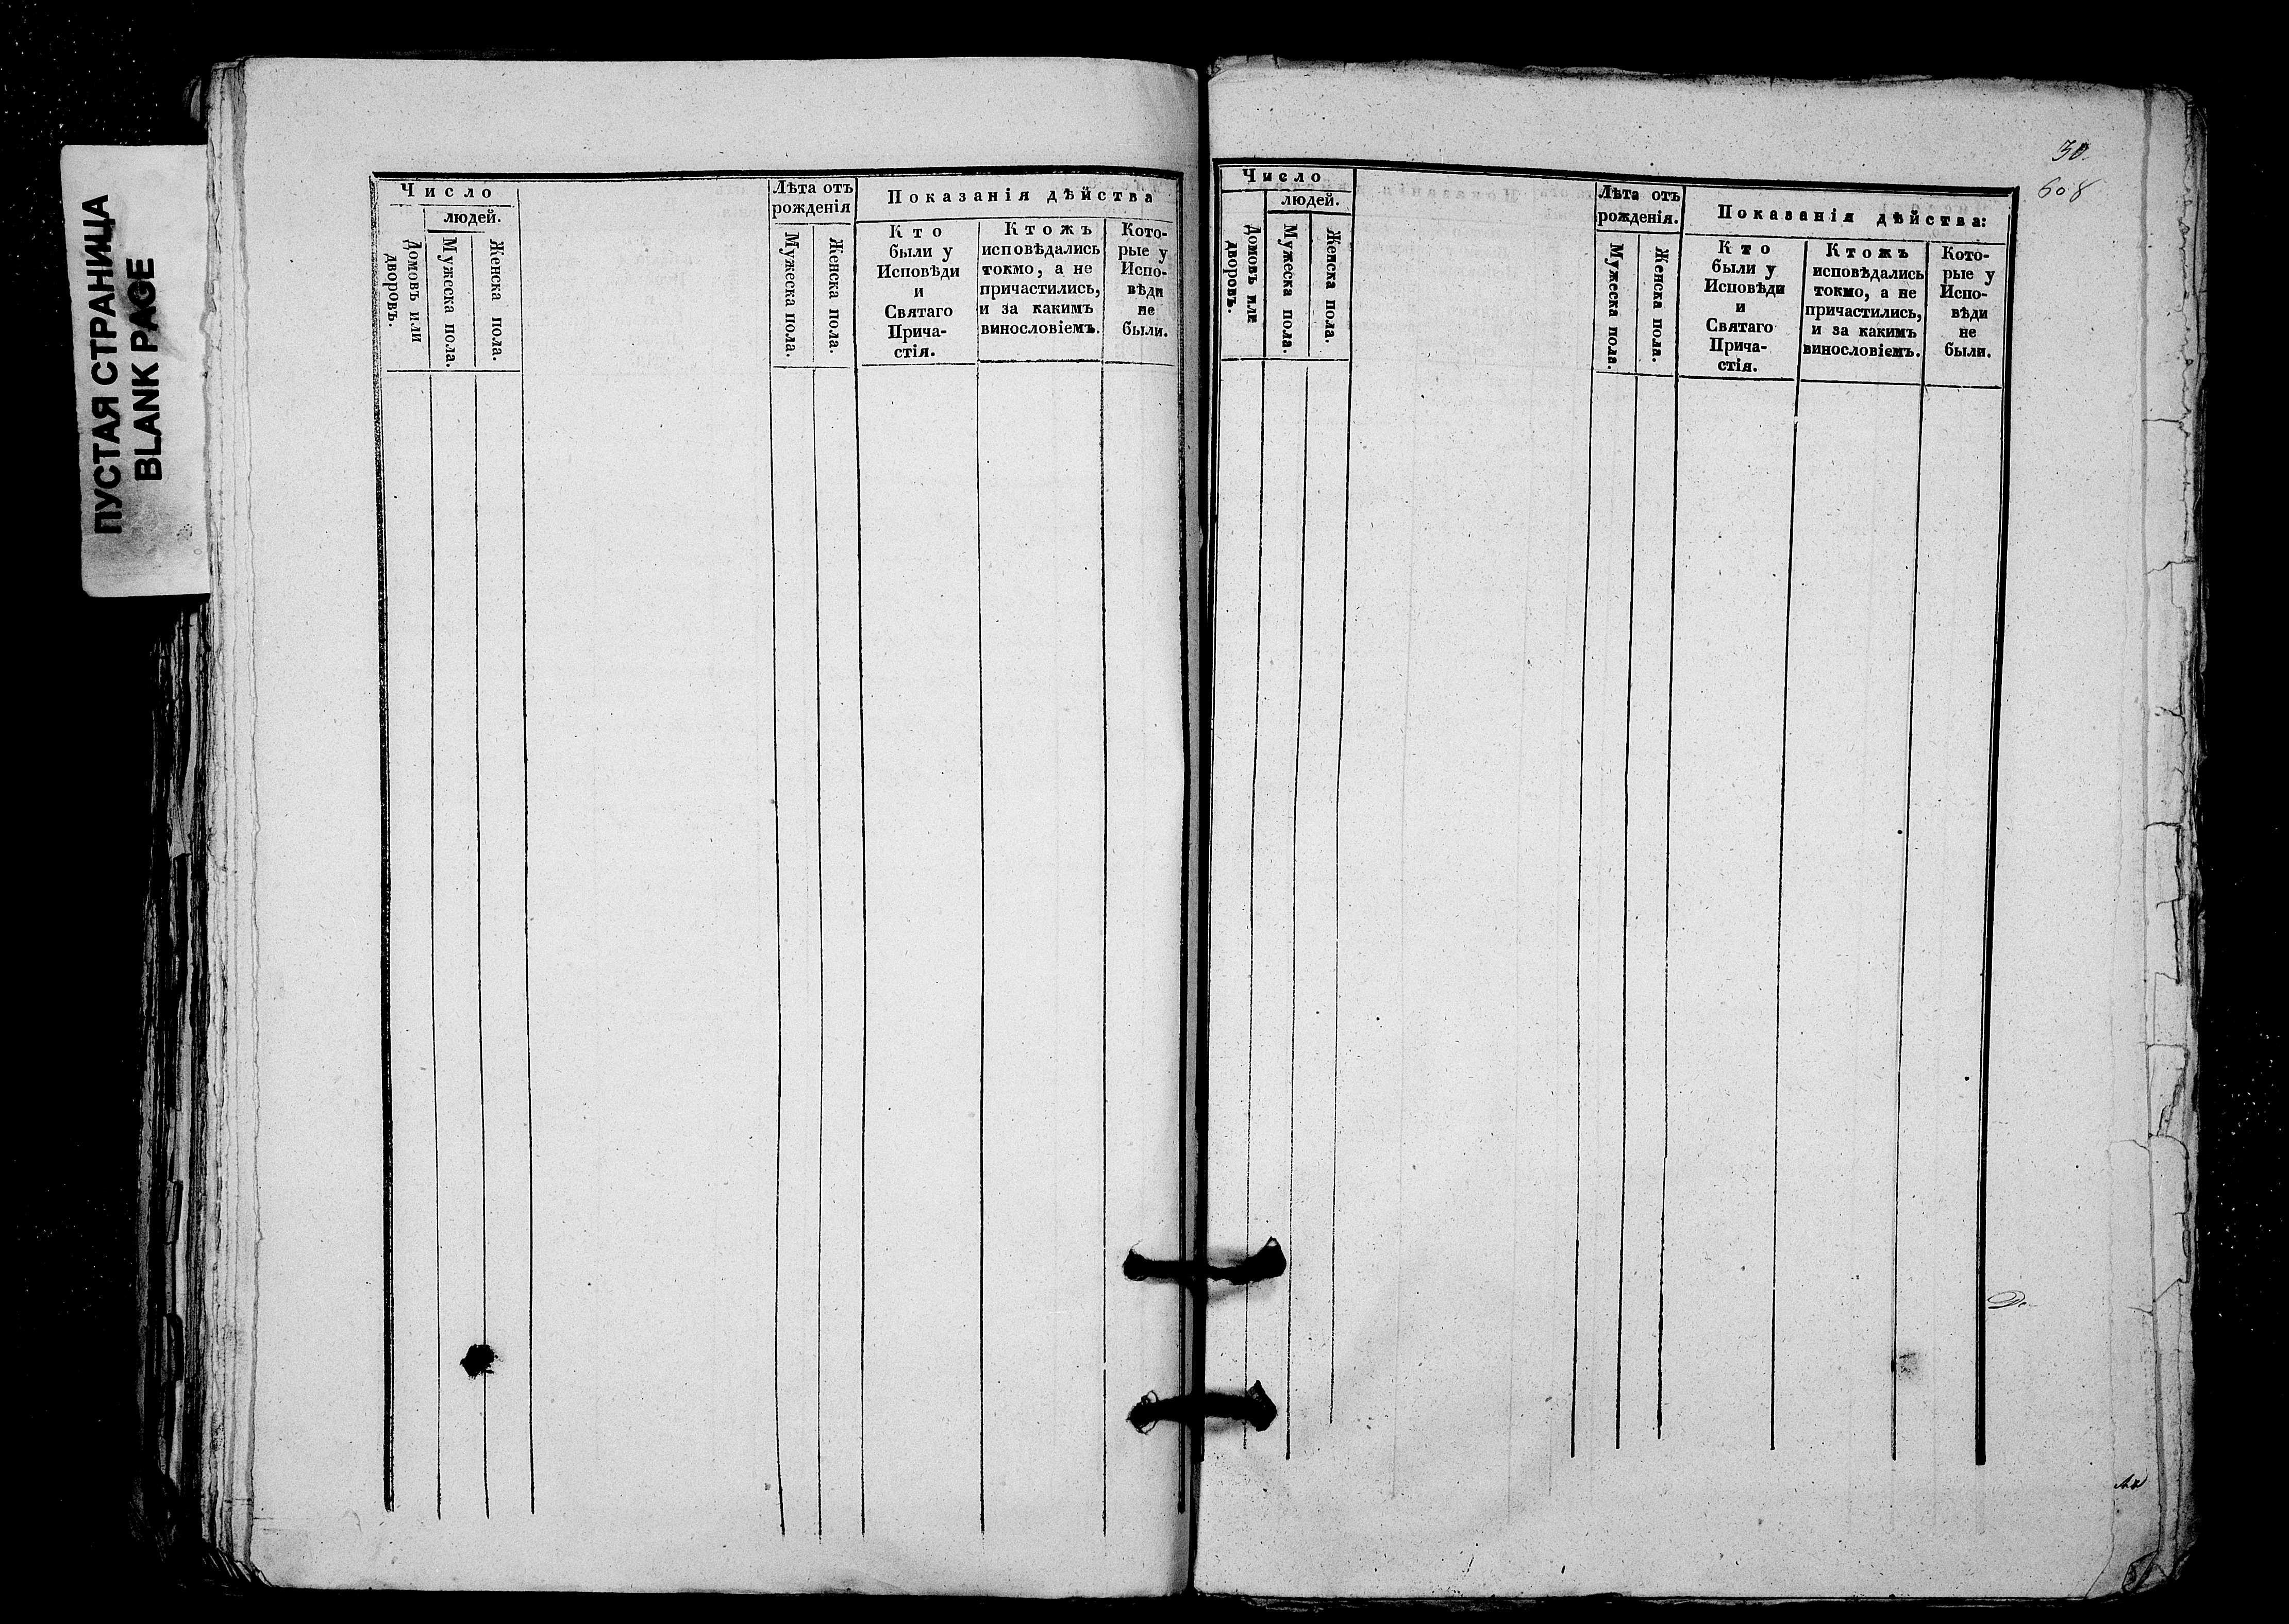 ПУСТАЯ СТРАНИЦА
BLANK PAGE
Число
людей.
Домовъ или
дворовъ.
Мужеска пола.
Женска пола.
Лѣта отъ
рожденія
Мужеска пола.
Женска пола.
Показанія дѣйства
Кто
были у
Исповѣди
и
Святаго
Прича-
стія.
Ктожъ
исповѣдались
токмо, а не
причастились,
и за какимъ
винословіемъ.
Кото-
рые у
Испо-
вѣди
не
были.
30.
608
Число
людей.
Домовъ или
дворовъ.
Мужеска пола.
Женска пола.
Лѣта отъ
рожденія.
Мужеска пола.
Женска пола.
Показанія дѣйства:
Кто
были у
Исповѣди
и
Святаго
Прича-
стія.
Ктожъ
исповѣдались
токмо, а не
причастились,
и за какимъ
винословіемъ.
Кото-
рые у
Испо-
вѣди
не
были.